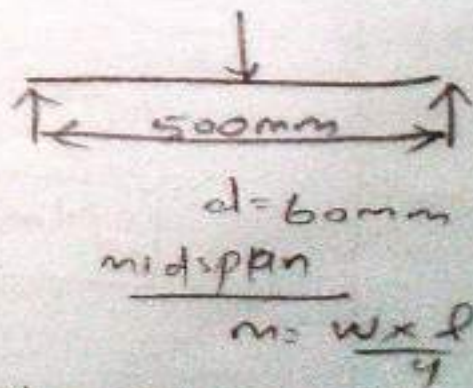 500mm
d=60mm
midspan
m= w×l
4